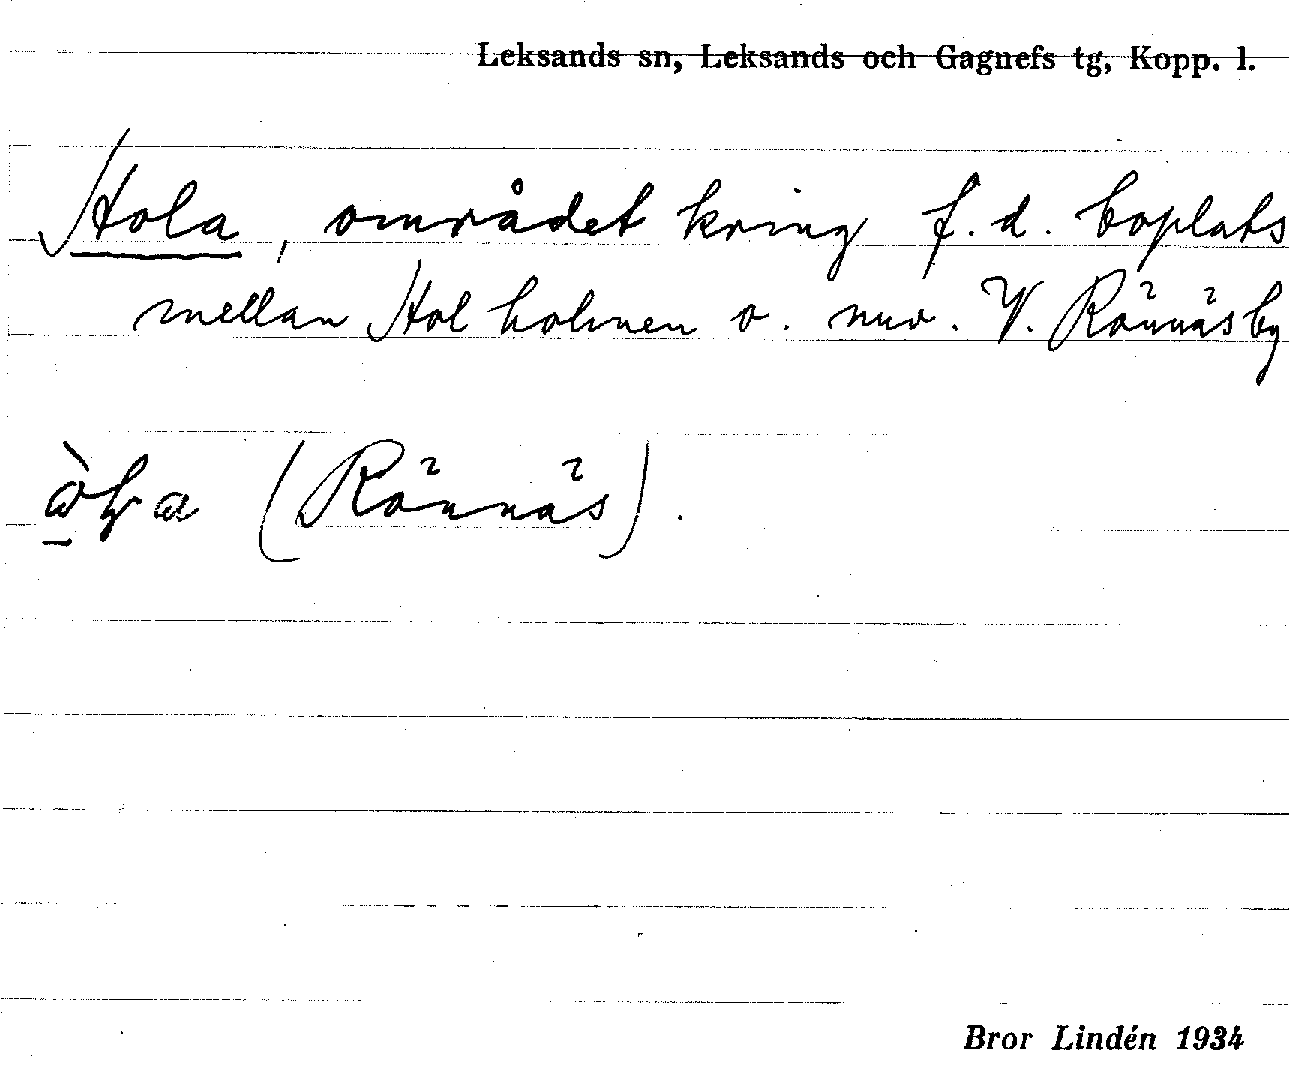 Leksands sn, Leksands och Gagnefs tg, Kopp. l.
Hola, området kring f. d. boplats
mellan Holholmen o. nuv. V. Rönnäsby
(Rönnäs).
Bror Lindén 1934